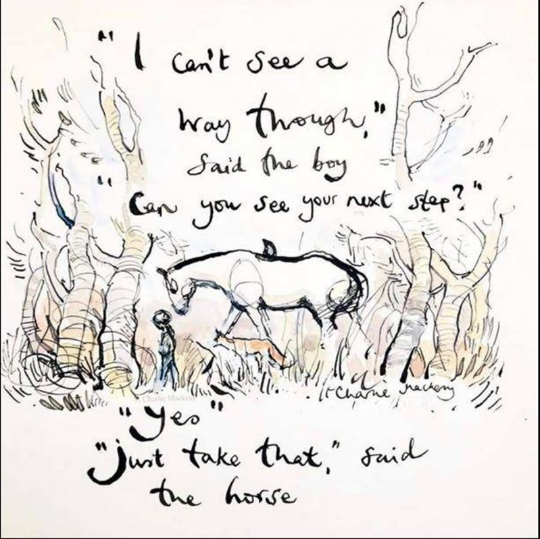 "I can't see a
way through,"
said the boy
"Can you see your next step?"
Charlie Mackesy
© Charlie Mackesy
"Yes"
"just take that," said
the horse